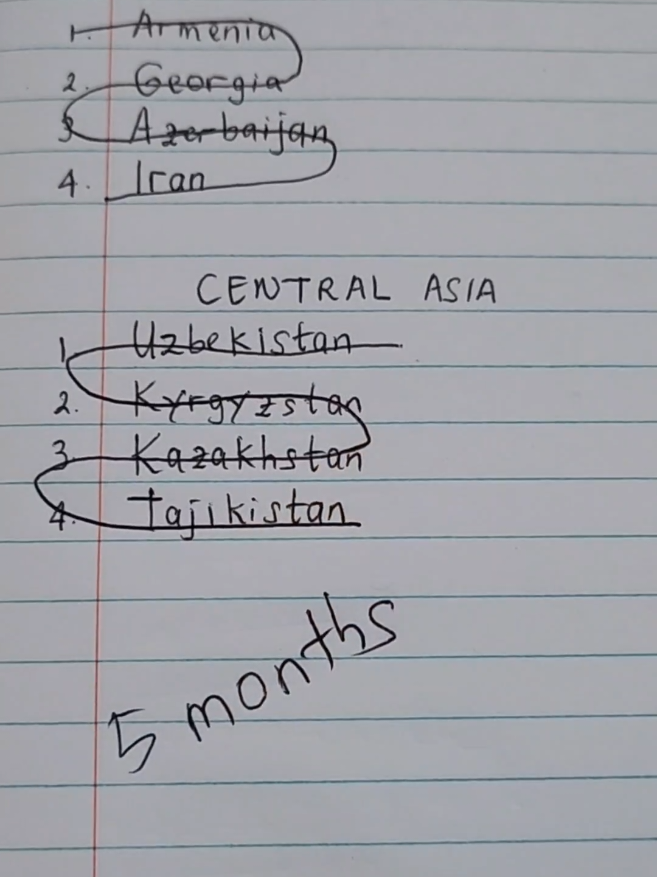 1. Armenia
2. Georgia
3. Azerbaijan
4. Iran
CENTRAL ASIA
1. Uzbekistan
2. Kyrgyzstan
3. Kazakhstan
4. Tajikistan
5 months